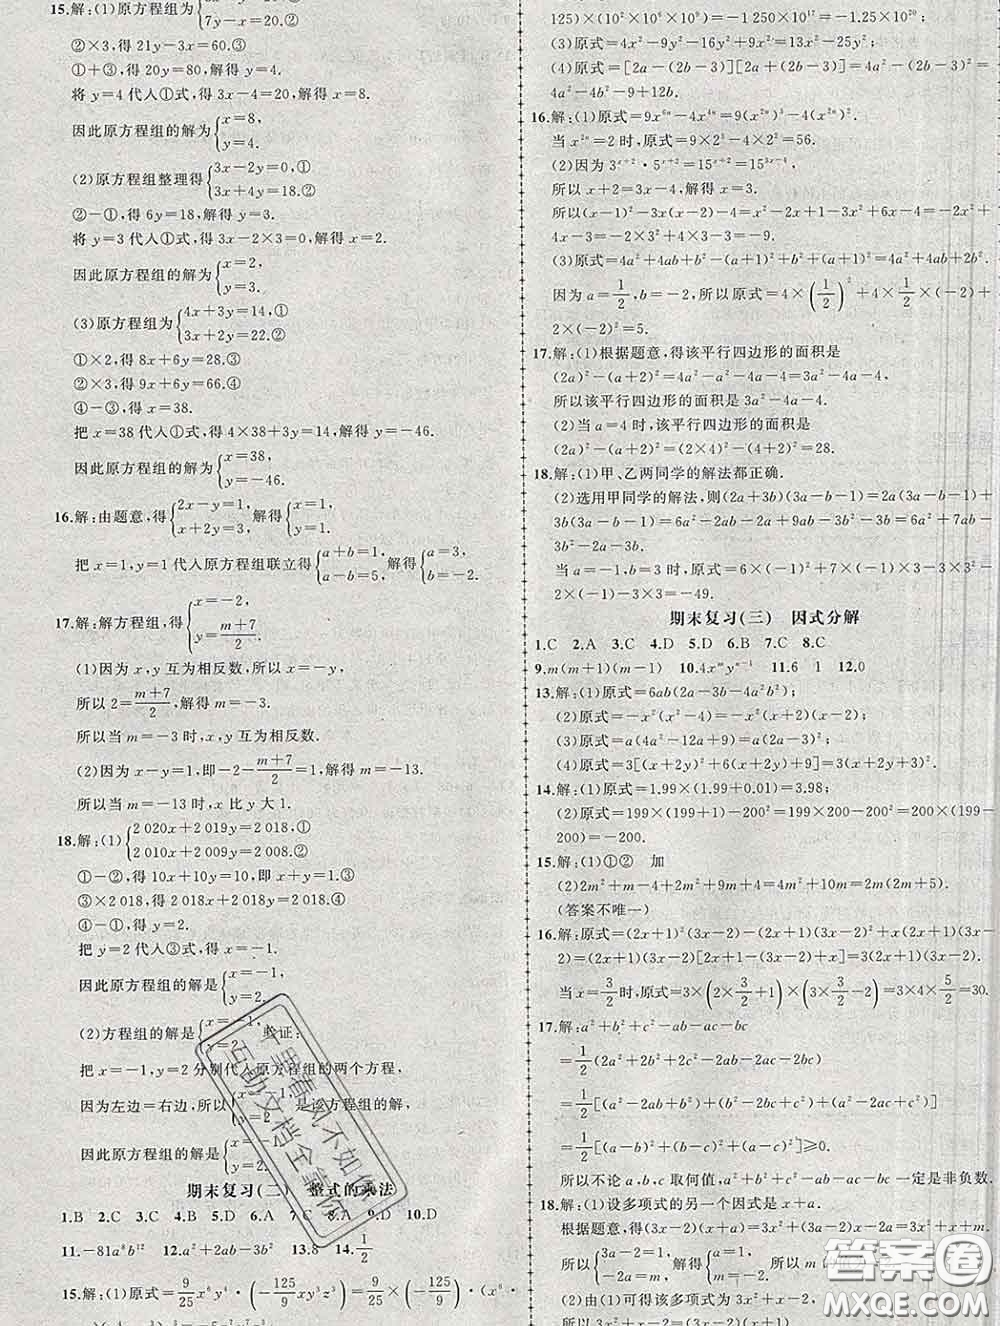 15.解:(1)原方程组为{x=2y,① 7y-x=20.②
②×3,得21y-3x=60.③
①+③,得20y=80,解得y=4.
将y=4代入①式,得3x-4=20,解得x=8.
因此原方程组的解为{x=8, y=4.
(2)原方程组整理得{3x-2y=0,① 3x+4y=18.②
②-①,得6y=18,解得y=3.
将y=3代入①式,得3x-2×3=0,解得x=2.
因此原方程组的解为{x=2, y=3.
(3)原方程组为{4x+3y=14,① 3x+2y=22.②
①×2,得8x+6y=28.③
②×3,得9x+6y=66.④
④-③,得x=38.
把x=38代入①式,得4×38+3y=14,解得y=-46.
因此原方程组的解为{x=38, y=-46.
16.解:由题意,得{2x-y=1, x+2y=3,解得{x=1, y=1.
把x=1,y=1代入原方程组联立得{a+b=1, a-b=5,解得{a=3, b=-2.
17.解:解方程组,得{x=-2, y=(m+7)/2.
(1)因为x,y互为相反数,所以x=-y,
所以2=(m+7)/2,解得m=-3.
所以当m=-3时,x,y互为相反数.
(2)因为x-y=1,即-2-(m+7)/2=1,解得m=-13.
所以当m=-13时,x比y大1.
18.解:(1){2 020x+2 019y=2 018,① 2 010x+2 009y=2 008.②
①-②,得10x+10y=10,即x+y=1.③
③×2 018,得2 018x+2 018y=2 018.④
④-①,得y=2.
把y=2代入③式,得x=-1.
因此原方程组的解是{x=-1, y=2.
(2)方程组的解是{x=-1, y=2. 验证:
把x=-1,y=2分别代入原方程组的两个方程,
因为左边=右边,所以{x=-1, y=2是该方程组的解,
因此原方程组的解是{x=-1, y=2.
期末复习(二) 整式的乘法
1.B 2.C 3.C 4.B 5.D 6.A 7.C 8.A 9.D 10.D
11.-81a⁸b¹² 12.a²+2ab-3b² 13.8 14.1/2
15.解:(1)原式=9/25x⁶y⁴·(-125/9xy³z³)=9/25×(-125/9)·(x⁶·
125)×(10²×10⁶×10⁹)=-1 250×10¹⁷=-1.25×10²⁰;
(3)原式=4x²-9y²-16y²+9x²=13x²-25y²;
(4)原式=[2a-(2b-3)][2a+(2b-3)]=4a²-(2b-3)²=
4a²-4b²-9+12b.
16.解:(1)原式=9x⁶ⁿ-4x⁴ⁿ=9(x²ⁿ)³-4(x²ⁿ)².
当x²ⁿ=2时,原式=9×2³-4×2²=56.
(2)因为3ˣ⁺²·5ˣ⁺²=15ˣ⁺²=15³ˣ⁻⁴
所以x+2=3x-4,解得x=3.
所以(x-1)²-3x(x-2)-4=x²-2x+1-3x²+6x-4=-2x²+
4x-3=-2×3²+4×3-3=-9.
(3)原式=4a²+4ab+b²-(a+1)²+b²+(a+1)²=4a²+4ab+2b².
因为a=1/2,b=-2,所以原式=4×(1/2)²+4×1/2×(-2)+
2×(-2)²=5.
17.解:(1)根据题意,得该平行四边形的面积是
(2a)²-(a+2)²=4a²-a²-4a-4=3a²-4a-4,
所以该平行四边形的面积是3a²-4a-4.
(2)当a=4时,该平行四边形的面积是
(2a)²-(a+2)²=(2×4)²-(4+2)²=28.
18.解:(1)甲、乙两同学的解法都正确.
(2)选用甲同学的解法,则(2a+3b)(3a-b-1)=2a(3a-b-1)+
3b(3a-b-1)=6a²-2ab-2a+9ab-3b²-3b=6a²+7ab-
3b²-2a-3b.
当a=-1,b=3时,原式=6×(-1)²+7×(-1)×3-3×3²-
2×(-1)-3×3=-49.
期末复习(三) 因式分解
1.C 2.A 3.C 4.D 5.D 6.B 7.C 8.C
9.m(m+1)(m-1) 10.4xᵐyⁿ⁻¹ 11.6 1 12.0
13.解:(1)原式=6ab(2a-3b-4a²b²);
(2)原式=-x²(x²-4)=-x²(x+2)(x-2);
(3)原式=a(4a²-12a+9)=a(2a-3)²;
(4)原式=3[(x+2y)²+6(x+2y)+9]=3(x+2y+3)².
14.解:(1)原式=1.99×(1.99+0.01)=3.98;
(2)原式=199×(199+1)-200²=199×200-200²=200×(199-
200)=-200.
15.解:(1)①② 加
(2)2m²+m-4+2m²+9m+4=4m²+10m=2m(2m+5).
(答案不唯一)
16.解:原式=(2x+1)²(3x-2)-(2x+1)(3x-2)²+x(2x+1)(3x-
2)=(2x+1)(3x-2)[2x+1-(3x-2)+x]=3(2x+1)(3x-2).
当x=3/2时,原式=3×(2×3/2+1)×(3×3/2-2)=3×4×5/2=30.
17.解:a²+b²+c²-ab-ac-bc
=1/2(2a²+2b²+2c²-2ab-2ac-2bc)
=1/2[(a²-2ab+b²)+(b²-2bc+c²)+(a²-2ac+c²)]
=1/2[(a-b)²+(b-c)²+(a-c)²]≥0.
所以不论a,b,c取何值,a²+b²+c²-ab-ac-bc一定是非负数.
18.解:(1)设多项式的另一个因式是x+a.
根据题意,得(3x-2)(x+a)=3x²+(3a-2)x-2a=3x²+x+m.
所以{3a-2=1, -2a=m,解得{a=1, m=-2.
(2)由(1)可得该多项式为3x²+x-2=(3x-2)(x+1).
千里春风不如你
互助文档全靠你
答案圈
MXQE.COM